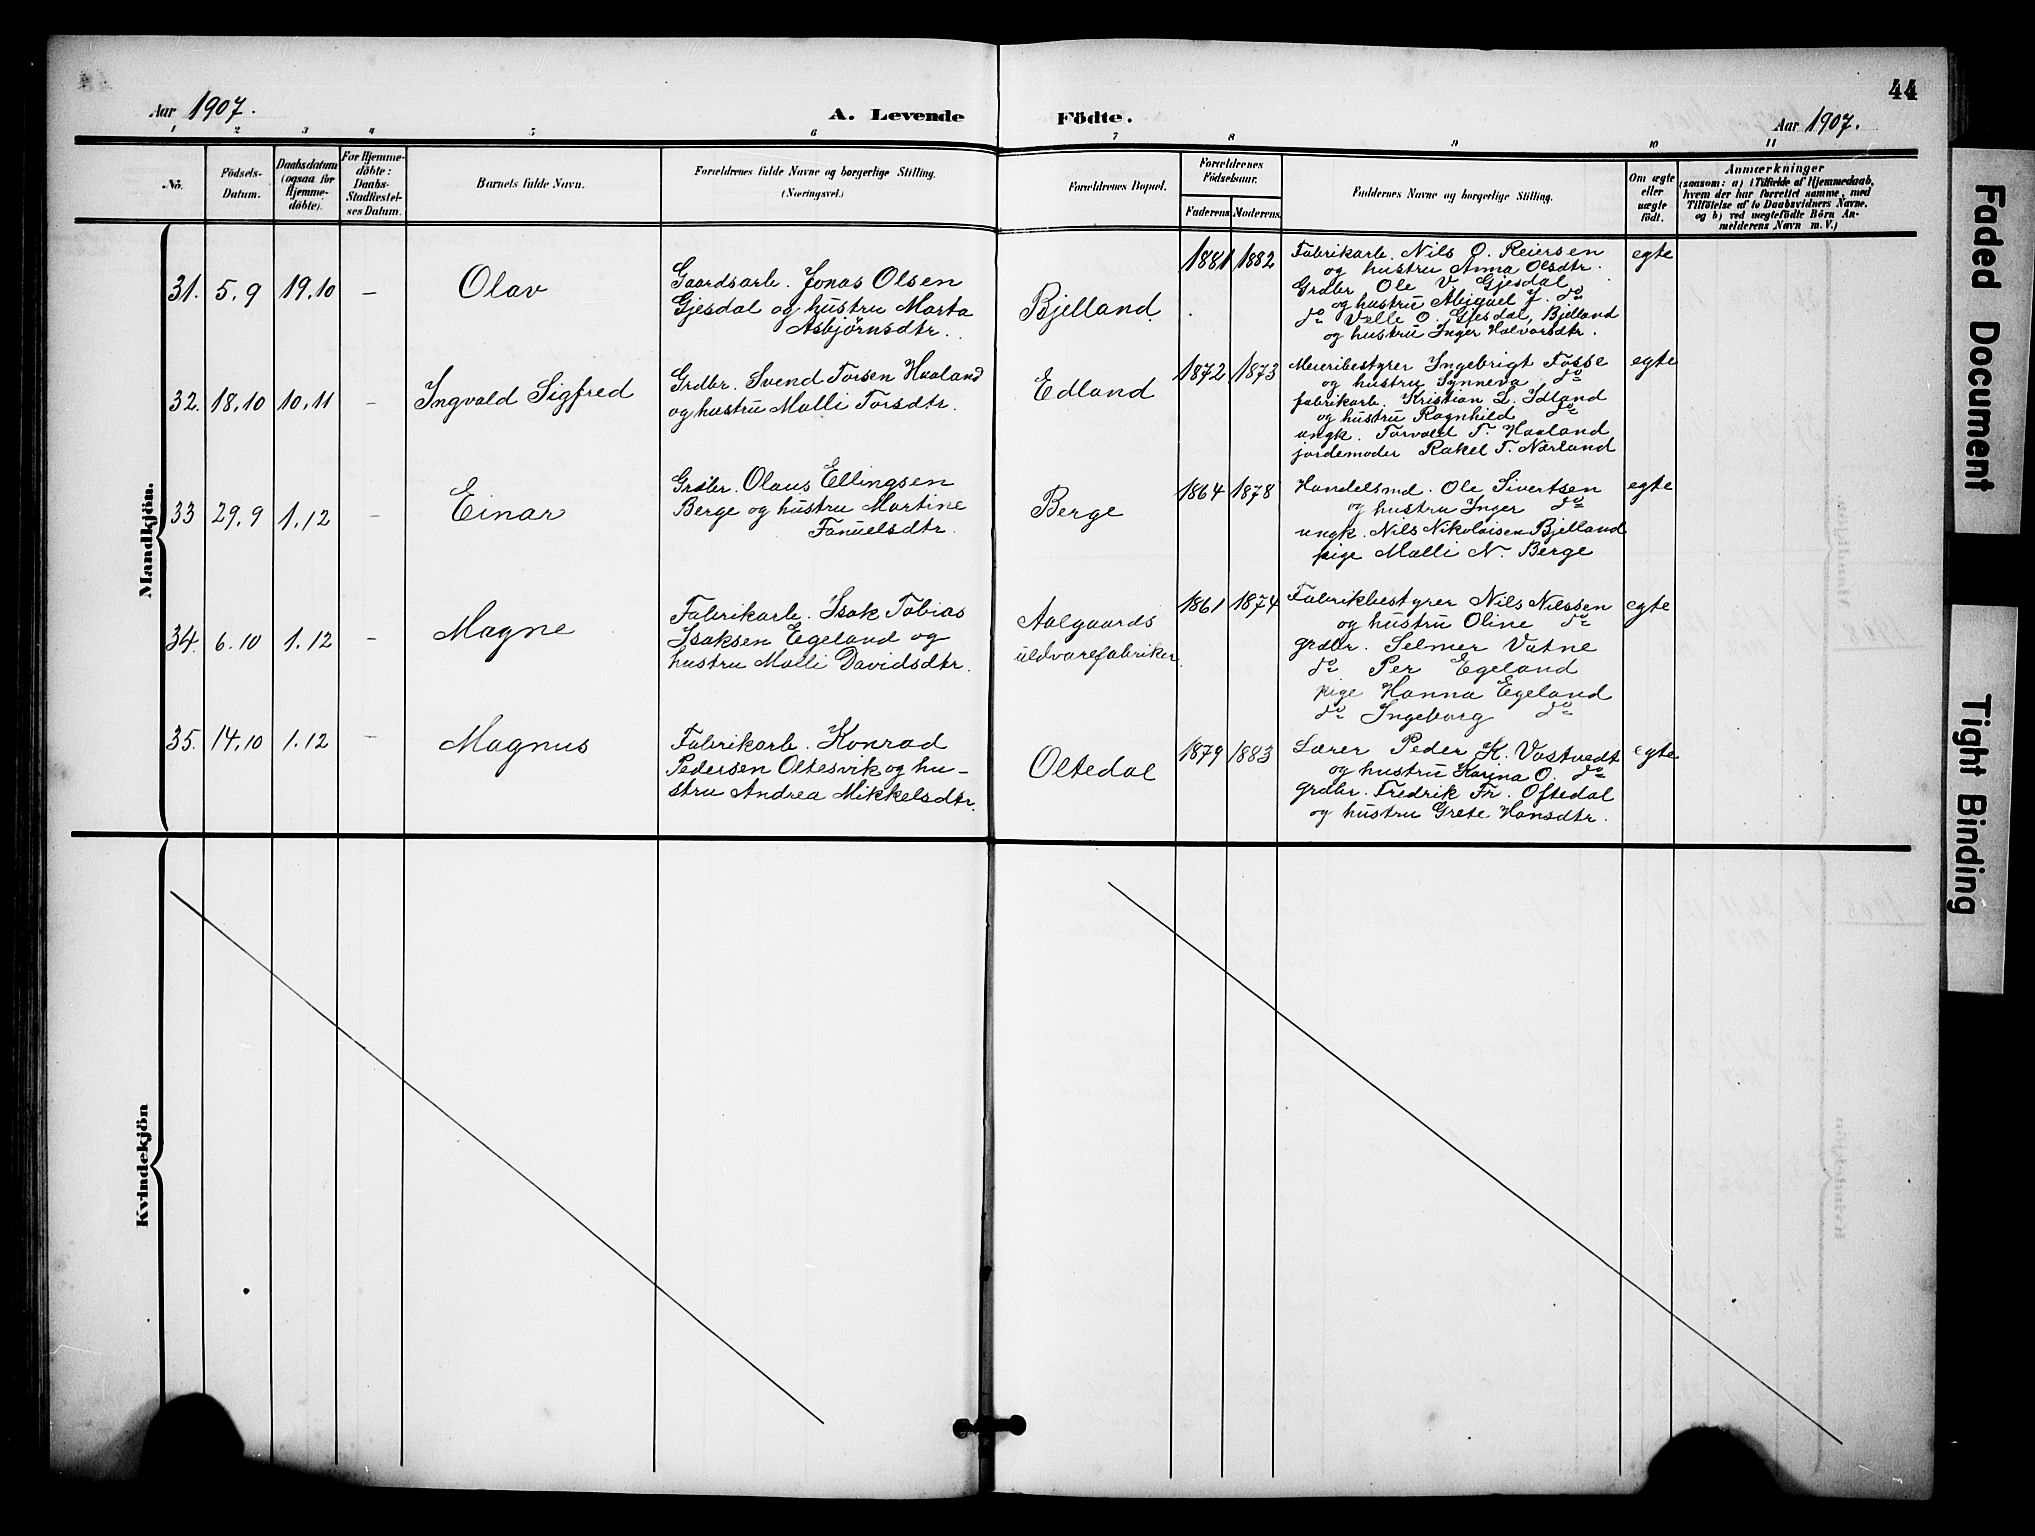 44
Aar 1907.
A. Levende Födte.
Aar 1907.
1 2 3 4 5 6 7 8 9 10 11
No.
Födsels-
Datum.
Daabsdatum
(ogsaa for
Hjemme-
döbte).
For Hjemme-
döbte:
Daabs-
Stadfæstel-
ses Datum.
Barnets fulde Navn.
Forældrenes fulde Navne og borgerlige Stilling.
(Næringsvei.)
Forældrenes Bopæl.
Forældrenes
Födselsaar.
Faderens. Moderens.
Faddernes Navne og borgerlige Stilling.
Om ægte
eller
uægte
födt.
Anmærkninger
(saasom: a) i Tilfælde af Hjemmedaab,
hvem der har forrettet samme, med
Tilföielse af to Daabsvidners Navne,
og b) ved uægtefödte Börn An-
melderens Navn m. V.)
Mandkjön.
31. 5.9 19.10 – Olav
Gaardsarb. Jonas Olsen
Gjesdal og hustru Marta
Asbjørnsdtr.
Bjelland.
1881 1882
Fabrikarb. Nils O. Reiersen
og hustru Anna Olsdtr.
Grdbr Ole V. Gjesdal
og hustru Abigael J. do
do Valle O. Gjesdal, Bjelland
og hustru Inger Halvorsdtr.
egte
32. 18.10 10.11 – Ingvald Sigfred
Grdbr. Svend Torsen Haaland
og hustru Malli Torsdtr.
Edland
1872 1873
Meieribestyrer Ingebrigt Fosse
og hustru Synneva do
fabrikarb. Kristian L. Idland
og hustru Ragnhild do
ungk. Torvald T. Haaland
jordemoder Rakel T. Nærland
egte
33 29.9 1.12 – Einar
Grdbr. Olaus Ellingsen
Berge og hustru Martine
Fanuelsdtr.
Berge
1864 1878
Handelsmd. Ole Sivertsen
og hustru Inger do
ungk. Nils Nikolaisen Bjelland
pige Malli N. Berge
egte
34. 6.10 1.12 – Magne
Fabrikarb. Isak Tobias
Isaksen Egeland og
hustru Malli Davidsdtr.
Aalgaards
uldvarefabriker.
1861 1874
Fabrikbestyrer Nils Nilssen
og hustru Oline do
grdbr. Selmer Vatne
do Per Egeland
pige Hanna Egeland
do Ingeborg do
egte
35. 14.10 1.12 – Magnus
Fabrikarb. Konrad
Pedersen Oltesvik og hu-
stru Andrea Mikkelsdtr.
Oltedal
1879 1883
Lærer Peder K. Vastvedt
og hustru Karina O. do
grdbr. Fredrik Fr. Oftedal
og hustru Grete Hansdtr.
egte
Kvindekjön
Faded Document
Tight Binding